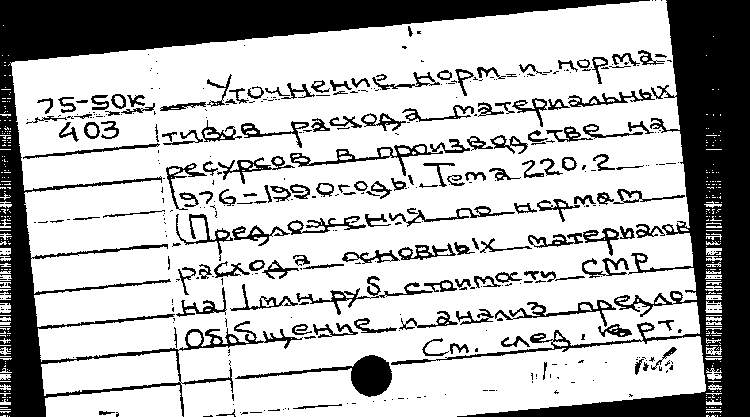 75-50к
403
Уточнение норм и норма-
тивов расхода материальных
ресурсов в производстве на
1976-1990 годы. Тема 220.2
(Предложения по нормам
расхода основных материалов
на 1 млн. руб. стоимости СМР.
Обобщение и анализ предло-
См. след. карт.